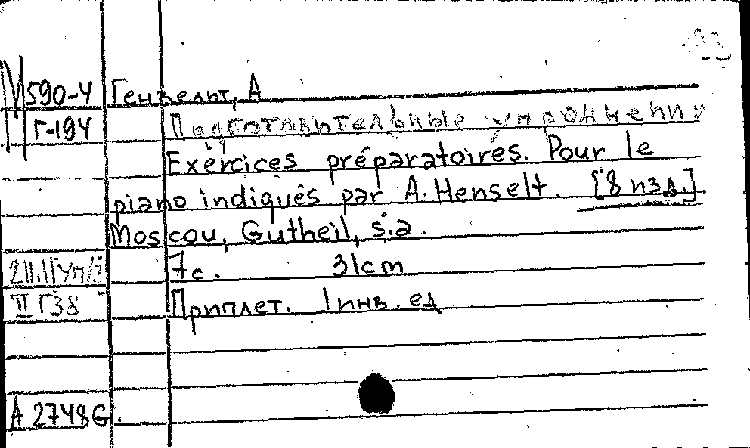 М590-4 Гензельт, А
Г-194 Подготовительные упражнения
Exércices préparatoires. Pour le
piano indiqués par A. Henselt. [8 изд.]
Moscou, Gutheil, s.a.
7с. 31cm
II Г38 Приплет. 1 инв. ед
А 2748G.